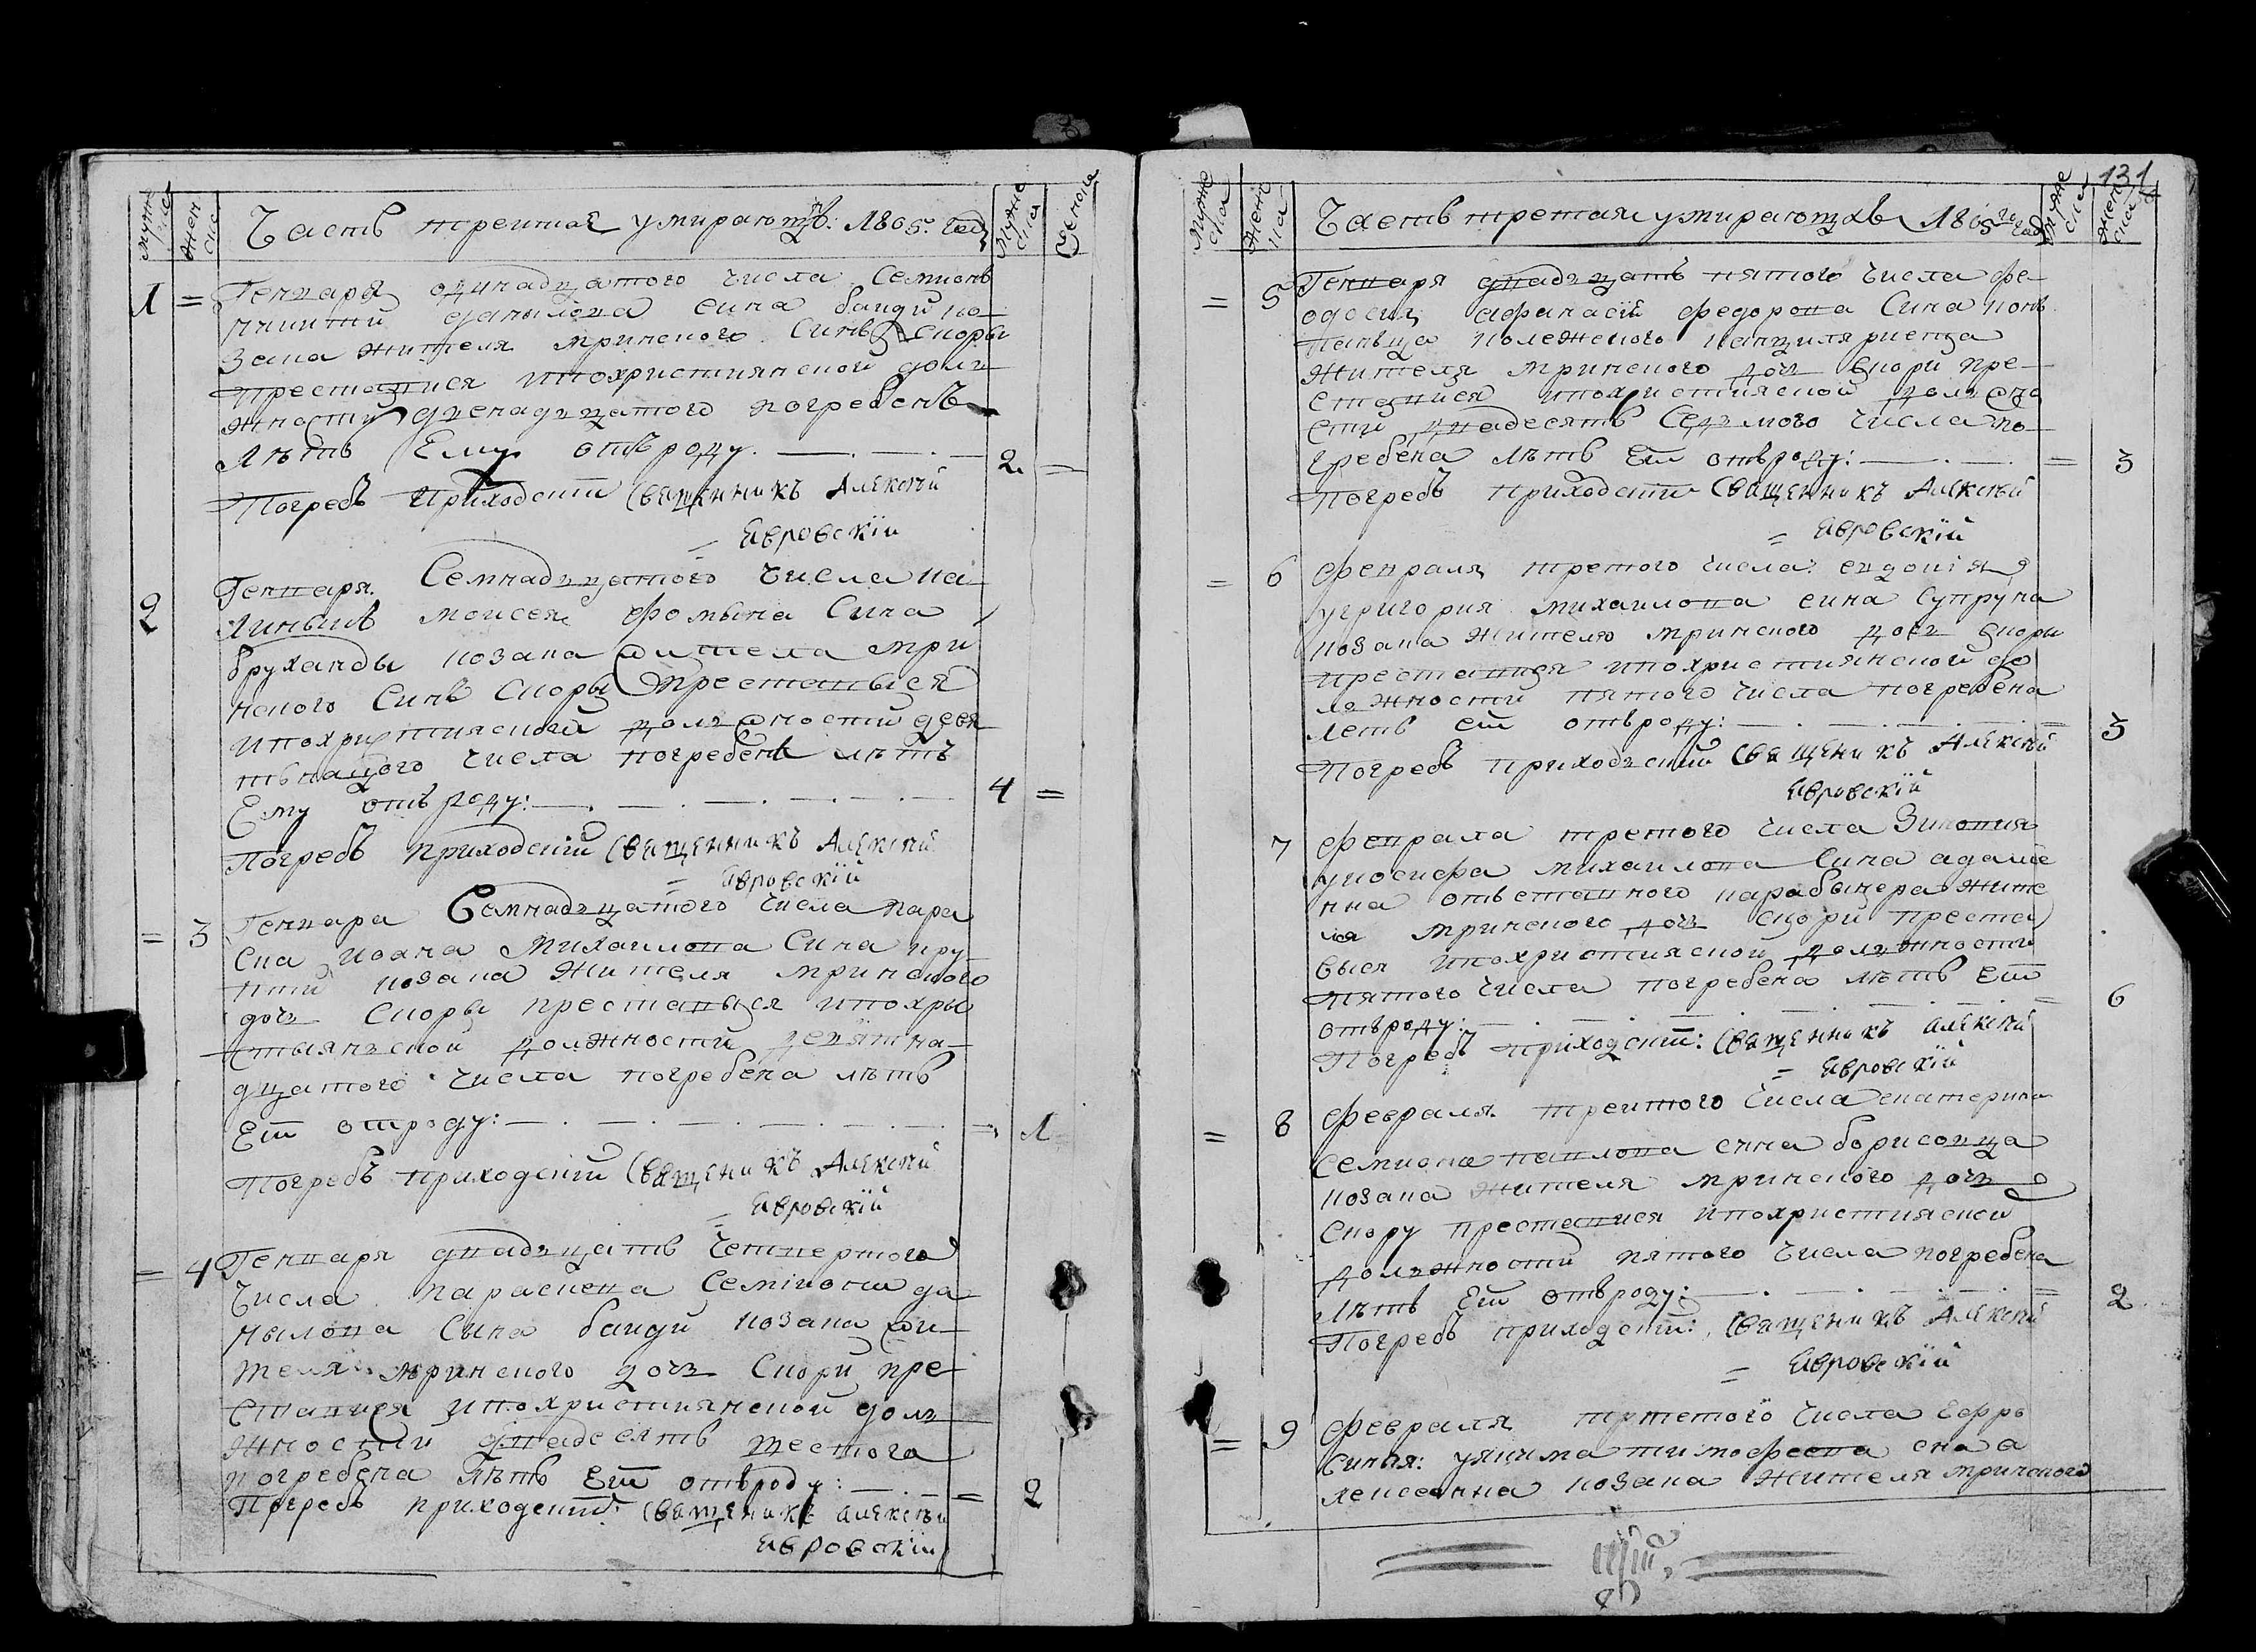 Часть третая умирающъ: 1805. год
1 = Генваря одинадцатого числа Семионъ
Данылова сина байди ко
зака жителя мринского синъ скоры
преставися похристиянской долг
жности дненадцатого погребенъ
лѣтъ Ему отъроду. 2 =
Погребъ Приходскій Священникъ Алексѣй
= Явровскій
2 Генваря Семнадцатого числа
Моисея Фомына Сина
бруханды козака жителя мри
нского Синъ скоры преставыся
похристияской должности девя
тънацого числа погребенъ лѣтъ
Ему отъроду: 4 =
Погребъ Приходскій Священникъ Алексѣй
= Явровскій
= 3 Генвара Семнадцатого числа пара
ска Иоана Михаилова Сина кру
козака Жителя мринского
дочъ скоры преставыся похры
стыянъской должности девятна
дцатого числа погребена лѣтъ
Ей отроду: = 1
Погребъ приходскій Священикъ Алексѣй
= Явровскій
= 4 Генваря двадъцать четвертого
Числа параскева Семіона да
нылова Сына байди козака жи
теля мринского дочъ скори пре
ставися похристиянской долъ
жности двадесять шестого
погребена лѣтъ Ей отъроду: = 2
Погребъ приходскій Священикъ Алексѣй
Явровскій
131
Часть третая умирающхъ 1805 год
= 5 Генваря двадъцать пятого числа фе
одосия афанасій федорова Сина
полежского канциляриста
жителя мринского дочъ скори пре
ставися похристияской должно
сти двадесятъ Седъмого числа по
гребена лѣтъ Ей отъроду: = 3
Погребъ приходскій Священникъ Алексѣй
= Явровскій
= 6 Февраля третого числа: евдокія
у григория михаилова сина Супруна
козака жителю мринского дочъ скоры
преставися похристиянской до
лжности пятого числа погребена
летъ ей отъроду: = 5
Погребъ приходъский Священикъ Алексѣй
Явровскій
7 Февраля третого числа Зиновия
у иосифа михаилова Сина адаме
нка отъставного карабынера жите
ля мринского дочъ скори преста
выся похристияской должности
пятого числа погребена лѣтъ Ей
отъроду: = 6
Погребъ приходскій: Священникъ Алексѣй
= Явровскій
= 8 Февраля третого числа екатерина
Семиона павлова сина борисовца
козака жителя мринского дочъ
скору преставися похристияской
должности пятого числа погребена
лѣтъ Ей отъроду: = 2
Погребъ приходскій: Священикъ Алексѣй
= Явровскій
= 9 Февраля третого числа Ефро
синия: у якима тимофеева сна а
лексеенка козака жителя мринского